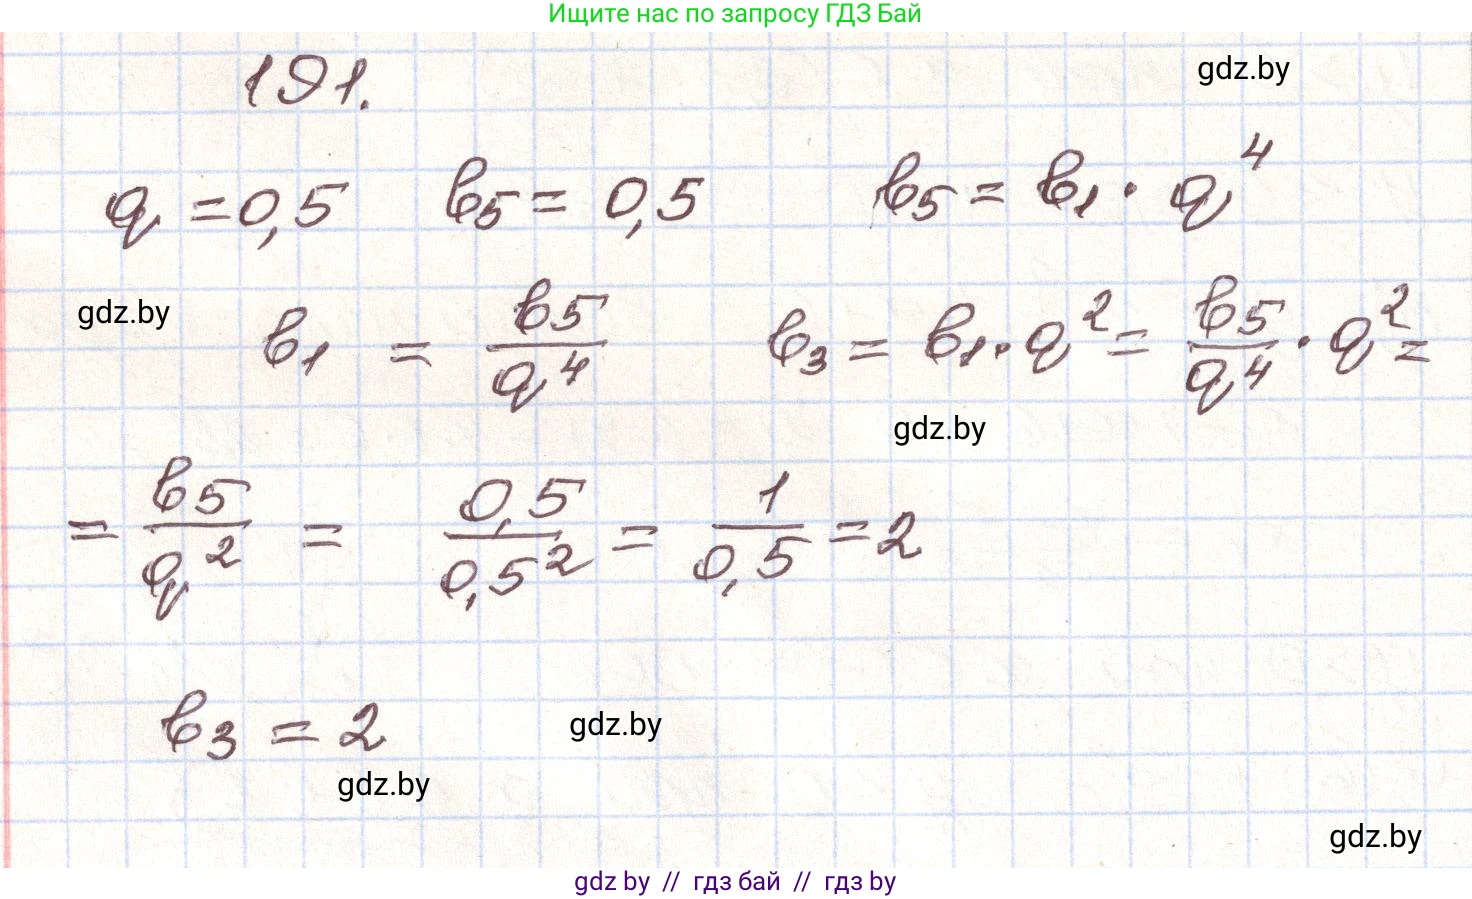 Ищите нас по запросу ГДЗ Бай
191.
gdz.by
q = 0,5 b₅ = 0,5 b₅ = b₁ · q⁴
gdz.by
b₁ = b₅/q⁴ b₃ = b₁ · q² = b₅/q⁴ · q² =
gdz.by
= b₅/q² = 0,5/0,5² = 1/0,5 = 2
b₃ = 2
gdz.by
gdz.by
gdz.by
gdz by // гдз бай // гдз by